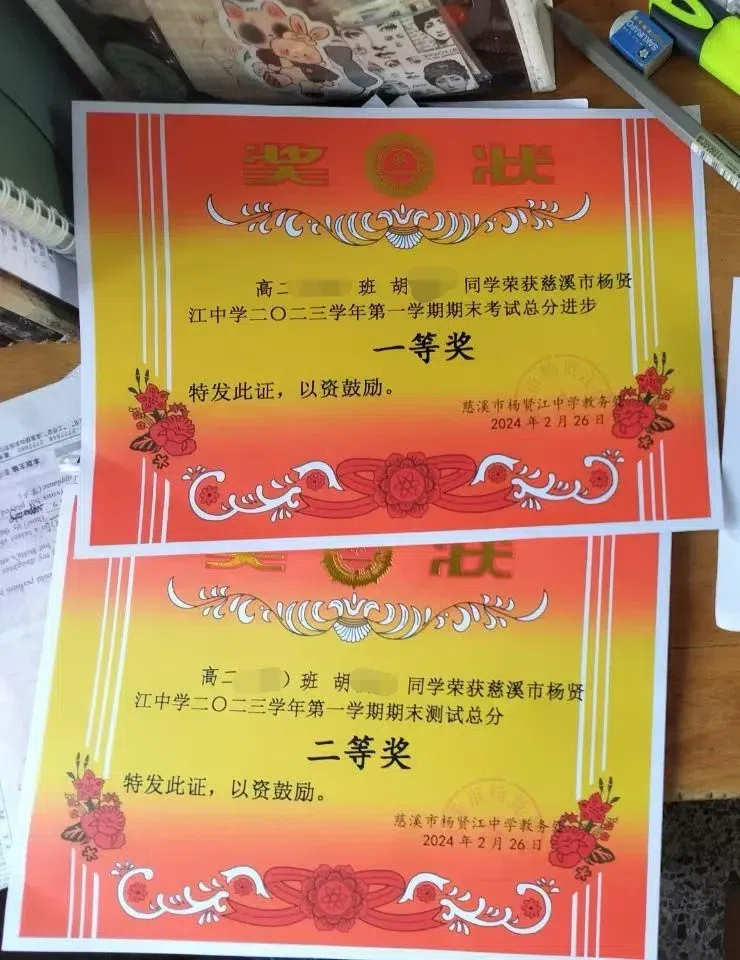 SAKURA
奖 状
高二 班 胡 同学荣获慈溪市杨贤
江中学二〇二三学年第一学期期末考试总分进步
一等奖
特发此证，以资鼓励。
慈溪市杨贤江中学教务处
2024 年 2 月 26 日
奖 状
高二 ）班 胡 同学荣获慈溪市杨贤
江中学二〇二三学年第一学期期末测试总分
二等奖
特发此证，以资鼓励。
慈溪市杨贤江中学教务处
2024 年 2 月 26 日